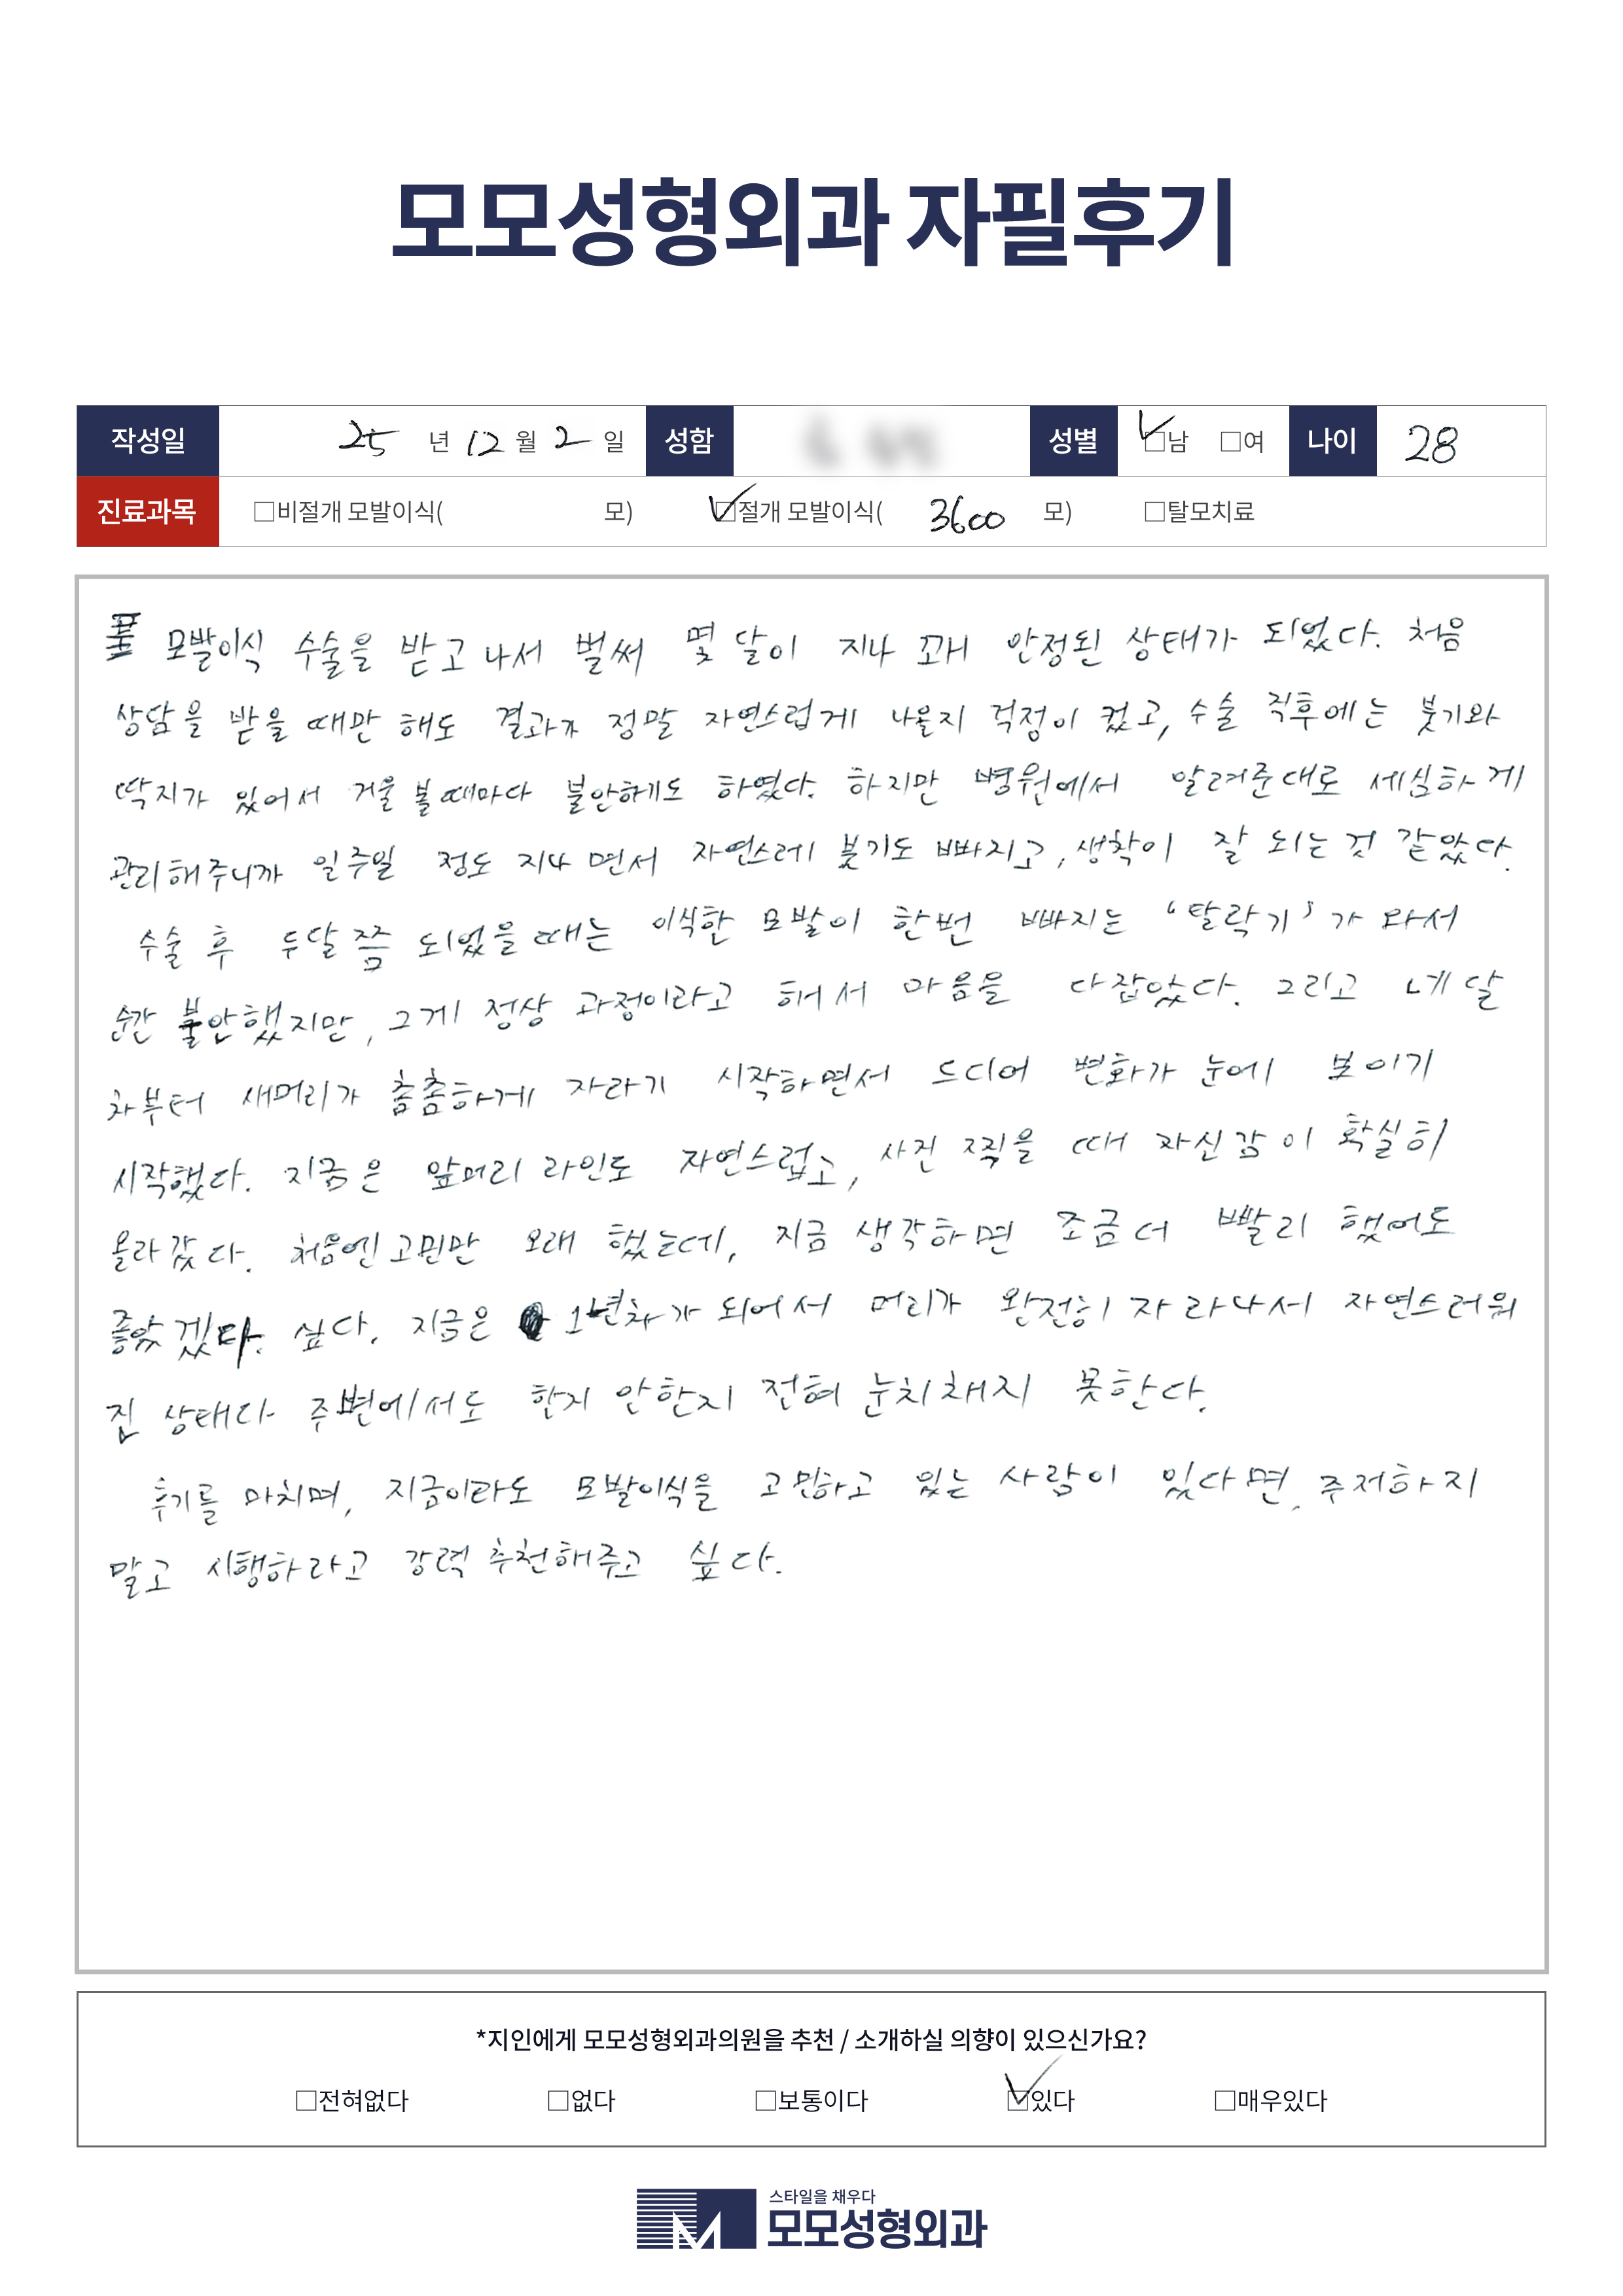 모모성형외과 자필후기
작성일 25 년 12 월 2 일 성함 성별 ☑남 □여 나이 28
진료과목 □비절개 모발이식( 모) ☑절개 모발이식( 3600 모) □탈모치료
모발이식 수술을 받고 나서 벌써 몇 달이 지나 꽤 안정된 상태가 되었다. 처음
상담을 받을 때만 해도 결과가 정말 자연스럽게 나올지 걱정이 컸고, 수술 직후에는 붓기와
딱지가 있어서 거울 볼때마다 불안해도 하였다. 하지만 병원에서 알려준대로 세심하게
관리해주니까 일주일 정도 지나면서 자연스레 붓기도 빠지고, 생착이 잘 되는 것 같았다.
수술 후 두달쯤 되었을때는 이식한 모발이 한번 빠지는 '탈락기'가 와서
순간 불안했지만, 그게 정상 과정이라고 해서 마음을 다잡았다. 그리고 네달
차부터 새머리가 촘촘하게 자라기 시작하면서 드디어 변화가 눈에 보이기
시작했다. 지금은 앞머리 라인도 자연스럽고, 사진 찍을 때 자신감이 확실히
올라갔다. 처음엔 고민만 오래 했는데, 지금 생각하면 조금 더 빨리 했어도
좋았겠다. 싶다. 지금은 1년차가 되어서 머리가 완전히 자라나서 자연스러워
진 상태다 주변에서도 한지 안한지 전혀 눈치채지 못한다.
후기를 마치며, 지금이라도 모발이식을 고민하고 있는 사람이 있다면, 주저하지
말고 시행하라고 강력 추천해주고 싶다.
*지인에게 모모성형외과의원을 추천 / 소개하실 의향이 있으신가요?
□전혀없다 □없다 □보통이다 ☑있다 □매우있다
스타일을 채우다
모모성형외과